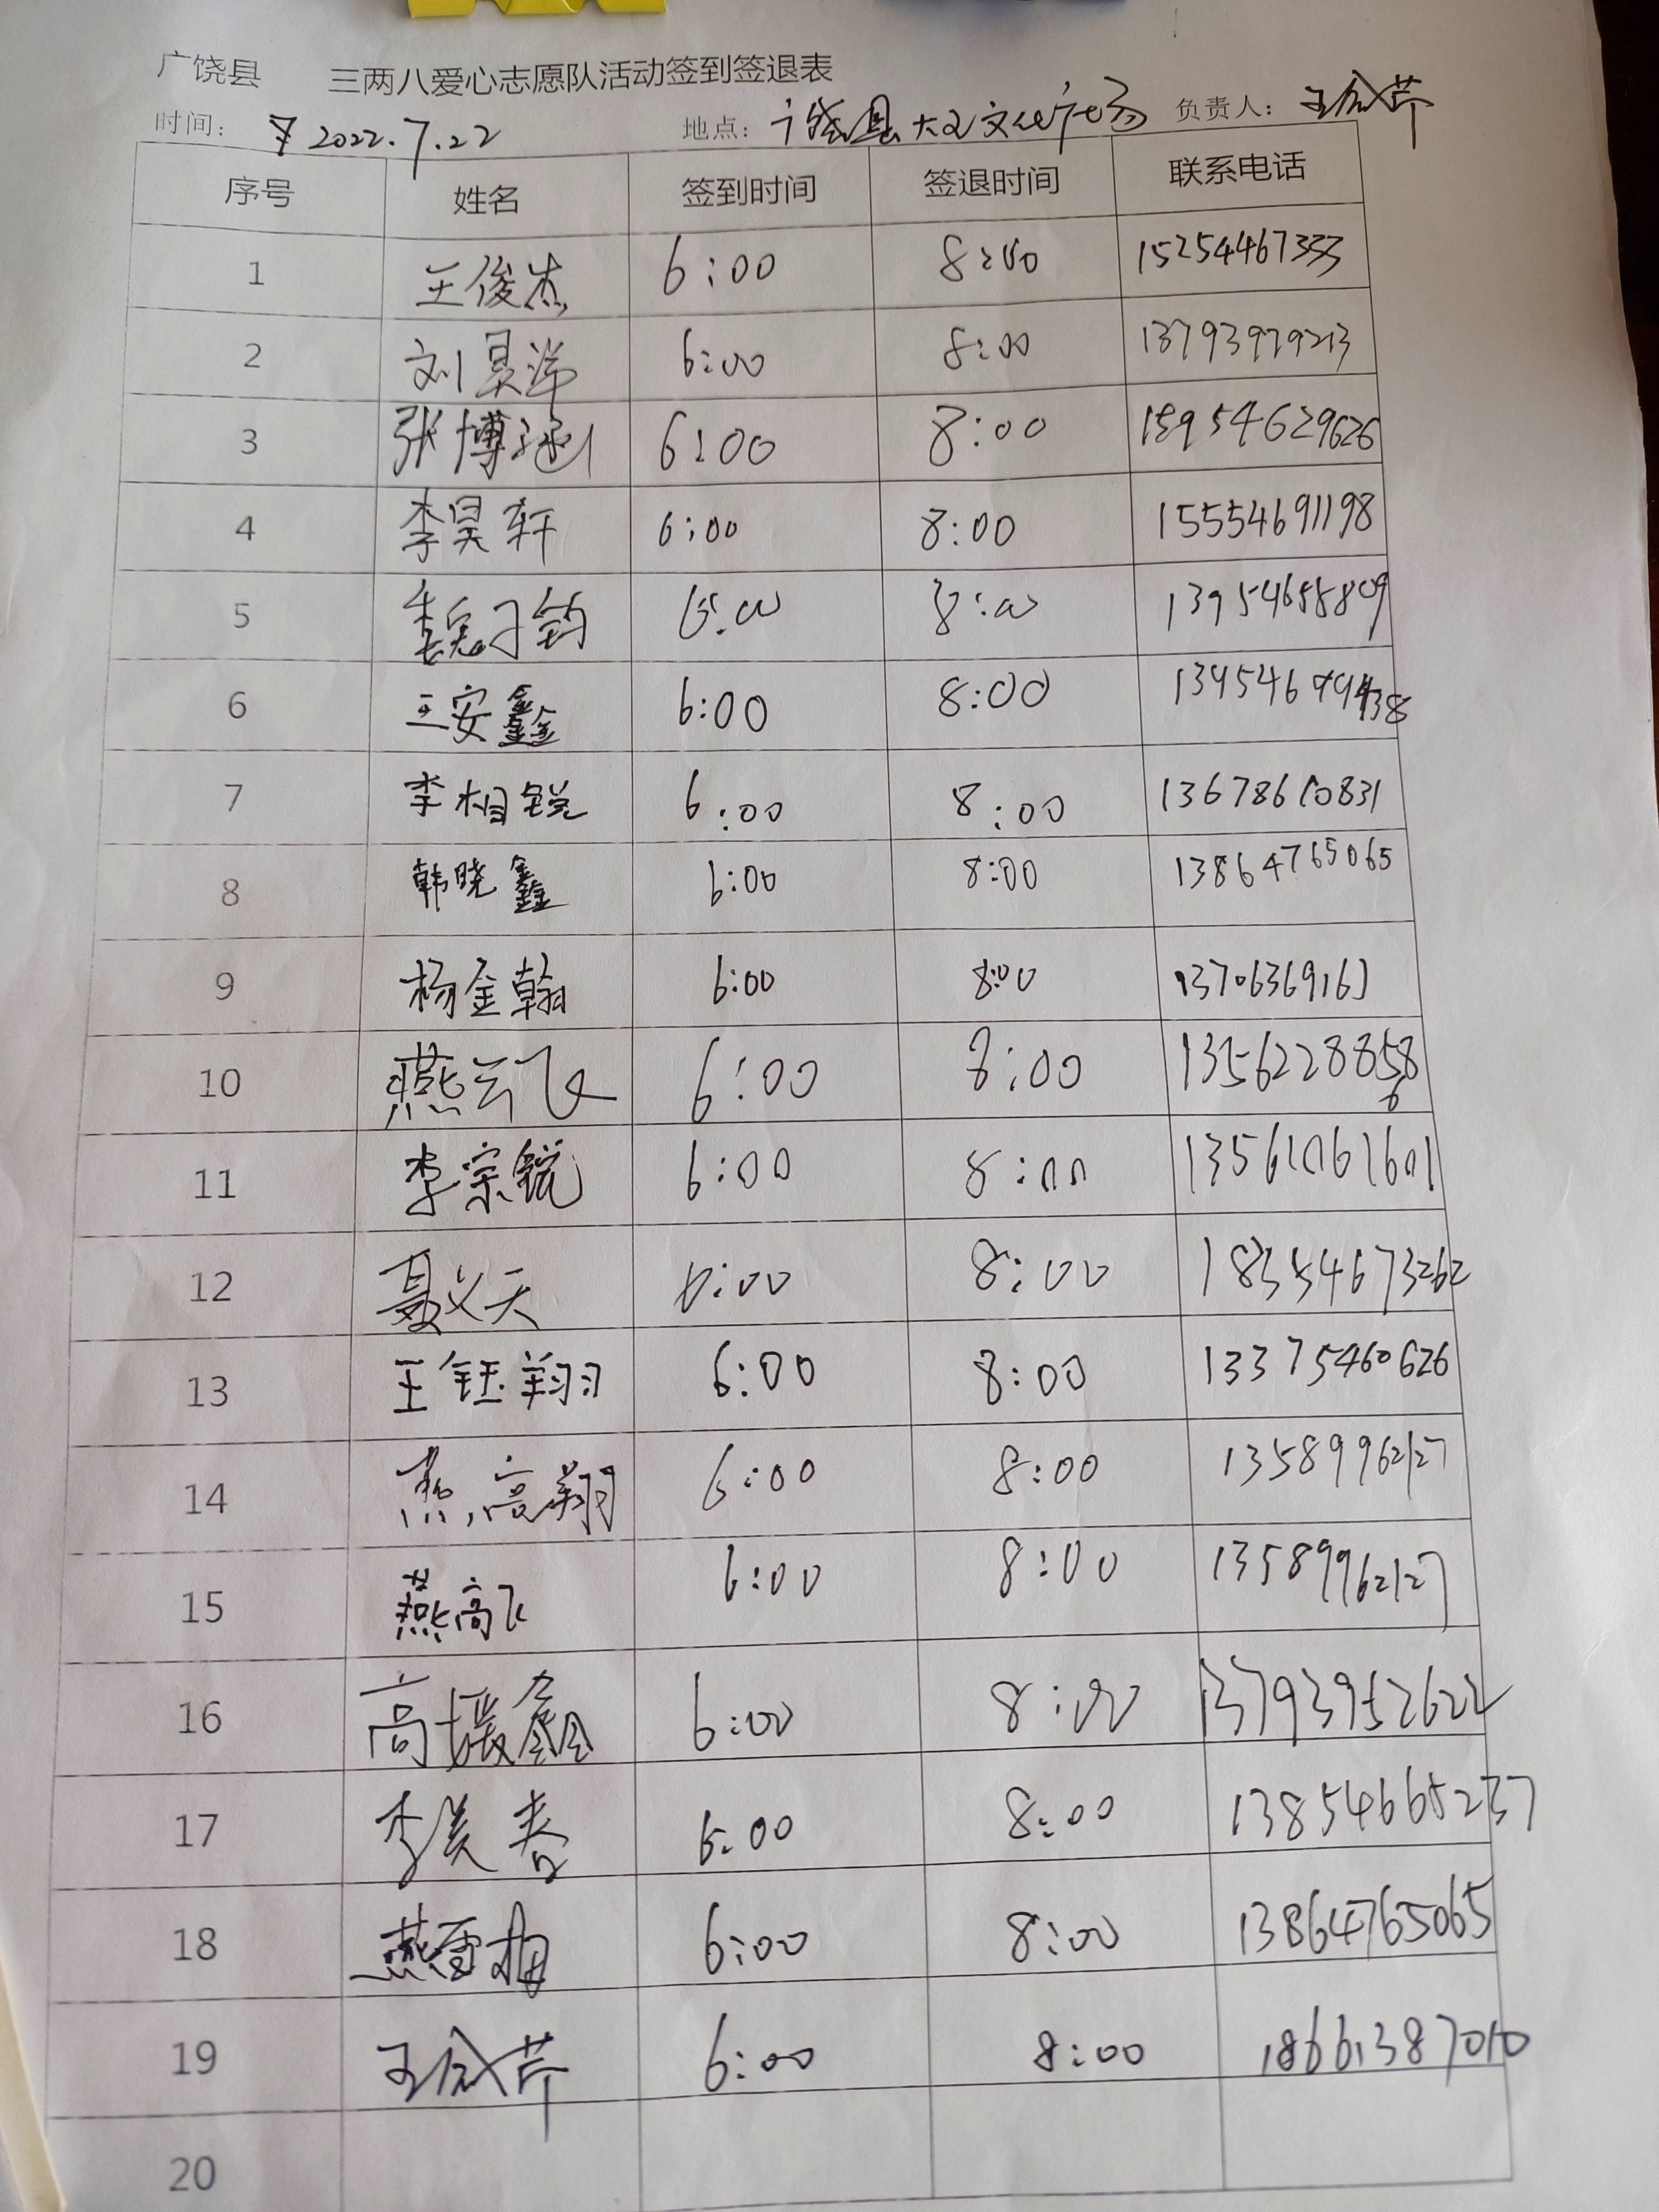 广饶县 三两八爱心志愿队活动签到签退表
时间: 2022.7.22 地点: 广饶县大王文化广场 负责人:
序号 姓名 签到时间 签退时间 联系电话
1 王俊杰 6:00 8:00 15254467333
2 刘昊洋 6:00 8:00 13793979213
3 张博涵 6:00 8:00 15954629626
4 李昊轩 6:00 8:00 15554691198
5 魏子钧 6:00 8:00 13954655809
6 王安鑫 6:00 8:00
7 李相锐 6:00 8:00 13678610831
8 韩晓鑫 6:00 8:00 13864765065
9 杨金翰 6:00 8:00 13706369163
10 燕云飞 6:00 8:00
11 李宗锐 6:00 8:00 13561061601
12 聂义天 6:00 8:00 18354673262
13 王钰翔 6:00 8:00 13375460626
14 燕高翔 6:00 8:00 13589962127
15 燕高飞 6:00 8:00 13589962127
16 高媛鑫 6:00 8:00 13793952622
17 李美春 6:00 8:00 13854665237
18 燕雪梅 6:00 8:00 13864765065
19 6:00 8:00 18661387010
20